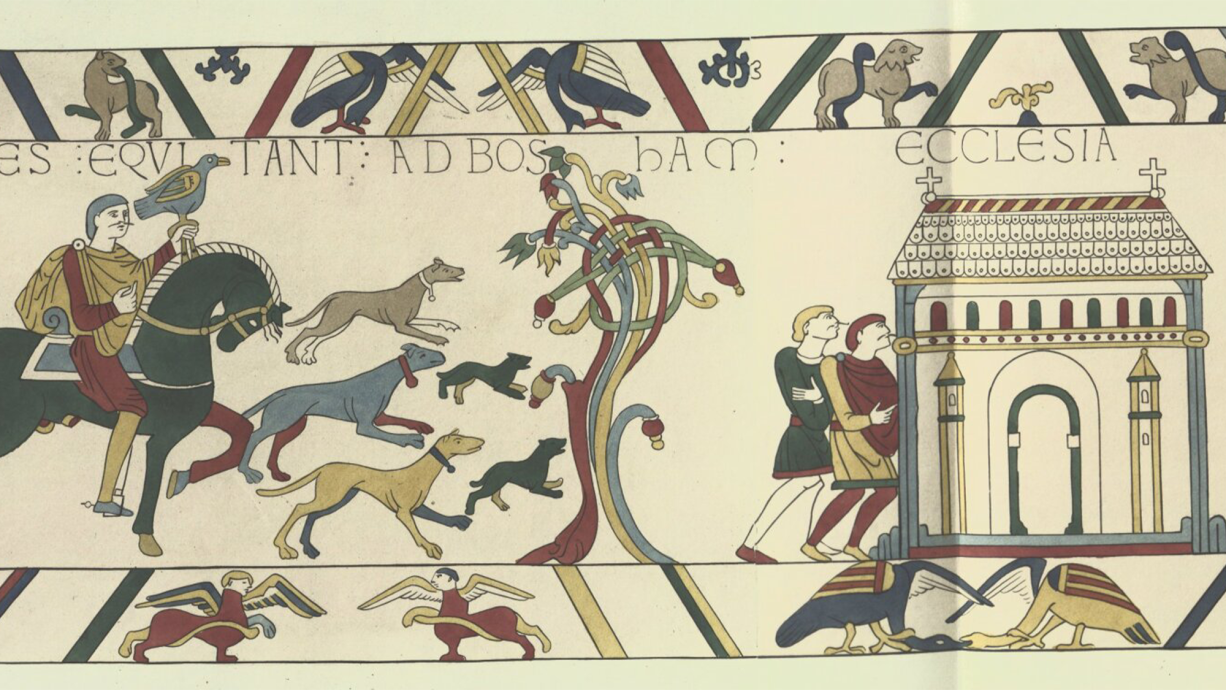 ES : EQVITANT : AD BOSHAM : ECCLESIA
3